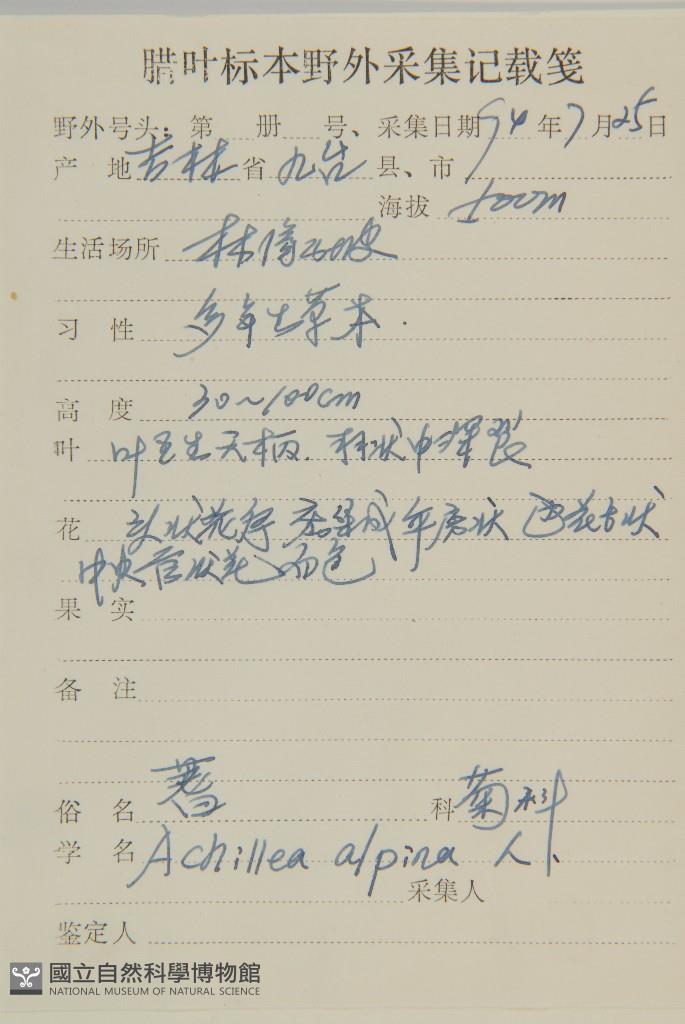 腊叶标本野外采集记载笺
野外号头：第 册 号、采集日期 94 年 7 月 25 日
产 地 吉林 省 九台 县、市
海拔 ±00m
生活场所 林缘
习 性 多年生草本.
高 度 30~100cm
叶 叶互生无柄. 状中深裂
花 头状花序 密集成伞房状 边花舌状
中央管状花 白色
果 实
备 注
俗 名 蓍 科 菊科
学 名 Achillea alpina L.
采集人
鉴定人
國立自然科學博物館
NATIONAL MUSEUM OF NATURAL SCIENCE